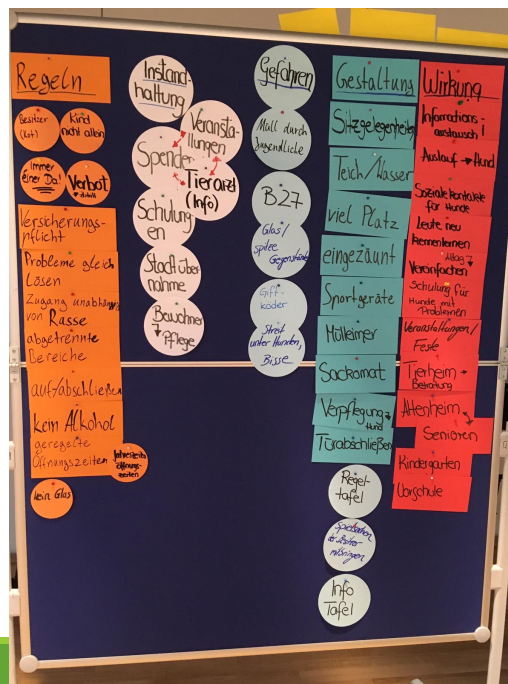 Regeln
Besitzer
(Kot)
Kind
nicht allein
Immer
einer Da!
Verbot
Versicherungs-
pflicht
Probleme gleich
Lösen
Zugang unabhängig
von Rasse
abgetrennte
Bereiche
auf/abschließen
kein Alkohol
geregelte
Öffnungszeiten
Jahreszeiten
öffnungs-
zeiten
kein Glas
Instand-
haltung
Veransta-
ltungen
Spenden
Tierarzt
(Info)
Schulung
en
Stadt über
nahme
Bewohner
Pflege
Gefahren
Müll durch
Jugendliche
B27
Glas/
spitze
Gegenstände
Gift-
köder
Streit
unter Hunden,
Bisse
Gestaltung
Sitzgelegenheiten
Teich/Wasser
viel Platz
eingezäunt
Sportgeräte
Mülleimer
Sackomat
Verpflegung
Hund
Türabschließen
Regel-
tafel
Spielsachen
der Besitzer
mitbringen
Info
Tafel
Wirkung
Informations-
austausch!
Auslauf → Hund
Soziale Kontakte
für Hunde
Leute neu
Kennenlernen
Alltag
Vereinfachen
Schulung für
Hunde mit
Problemen
Veranstaltungen/
Feste
Tierheim →
Beratung
Altenheim
Senioren
Kindergarten
Vorschule